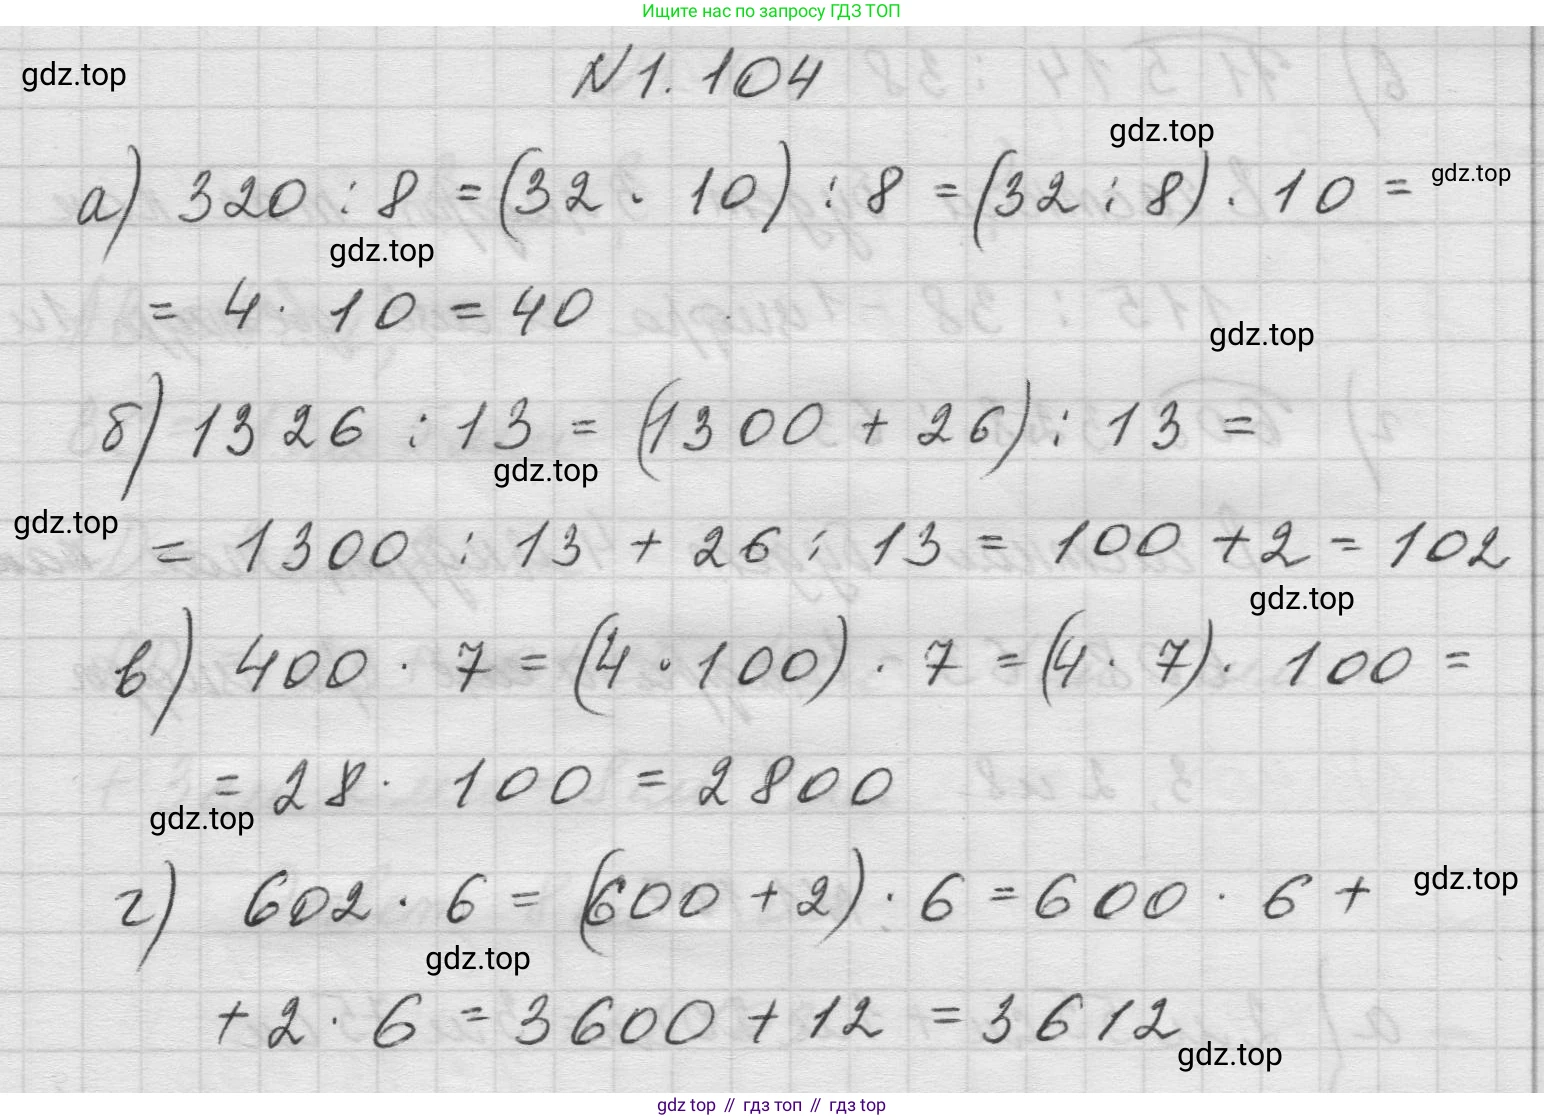 Ищите нас по запросу ГДЗ ТОП
gdz.top
N1.104
gdz.top
а) 320 : 8 = (32 · 10) : 8 = (32 : 8) · 10 =
gdz.top
gdz.top
= 4 · 10 = 40
gdz.top
б) 1326 : 13 = (1300 + 26) : 13 =
gdz.top
gdz.top
= 1300 : 13 + 26 : 13 = 100 + 2 = 102
gdz.top
в) 400 · 7 = (4 · 100) · 7 = (4 · 7) · 100 =
= 28 · 100 = 2800
gdz.top
г) 602 · 6 = (600 + 2) · 6 = 600 · 6 +
gdz.top
gdz.top
+ 2 · 6 = 3600 + 12 = 3612
gdz.top
gdz top // гдз топ // гдз top